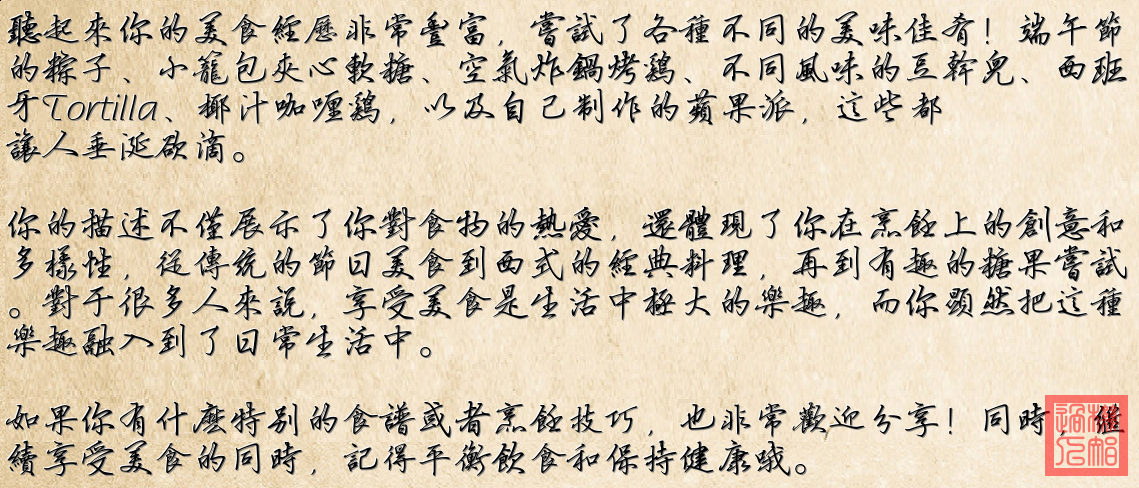 聽起來你的美食經歷非常豐富，嘗試了各種不同的美味佳肴！端午節
的粽子、小籠包夾心軟糖、空氣炸鍋烤鷄、不同風味的豆幹兒、西班
牙Tortilla、椰汁咖喱鷄，以及自己制作的蘋果派，這些都
讓人垂涎欲滴。
你的描述不僅展示了你對食物的熱愛，還體現了你在烹飪上的創意和
多樣性，從傳統的節日美食到西式的經典料理，再到有趣的糖果嘗試
。對于很多人來說，享受美食是生活中極大的樂趣，而你顯然把這種
樂趣融入到了日常生活中。
如果你有什麽特別的食譜或者烹飪技巧，也非常歡迎分享！同時，繼
續享受美食的同時，記得平衡飲食和保持健康哦。